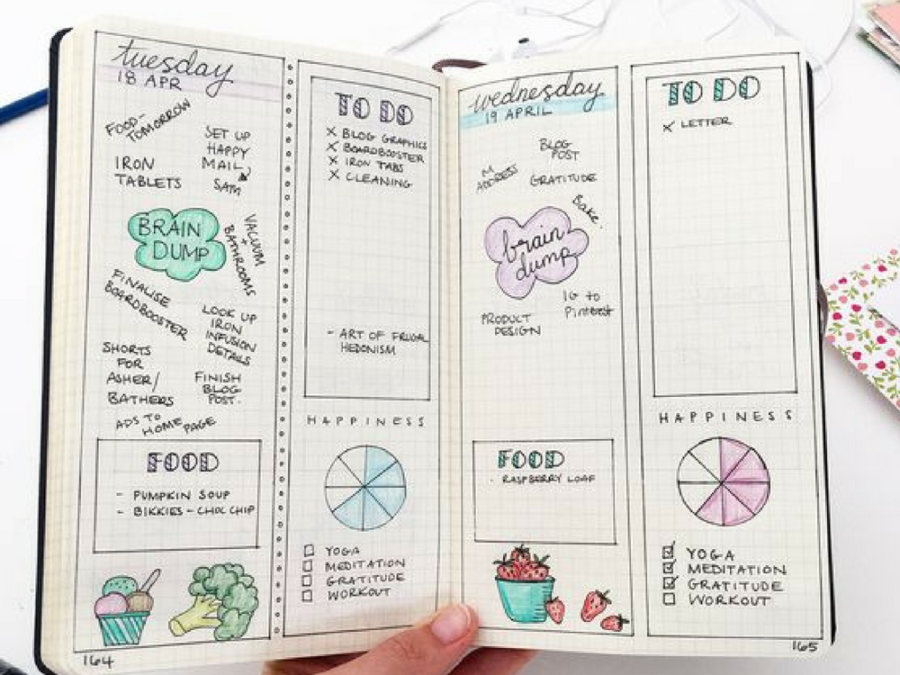 tuesday
18 APR
FOOD-
TOMORROW
SET UP
HAPPY
MAIL,
SAM
IRON
TABLETS
BRAIN
DUMP
VACUUM
+
BATHROOMS
FINALISE
BOARDBOOSTER
LOOK UP
IRON
INFUSION
DETAILS
SHORTS
FOR
ASHER/
BATHERS
FINISH
BLOG
POST.
ADS TO
HOME PAGE
FOOD
- PUMPKIN SOUP
- BIKKIES - CHOC CHIP
164
TO DO
X BLOG GRAPHICS
X BOARDBOOSTER
X IRON TABS
X CLEANING
- ART OF FRUGAL
HEDONISM
HAPPINESS
YOGA
MEDITATION
GRATITUDE
WORKOUT
wednesday
19 APRIL
BLOG
POST
M
ADDRESS
GRATITUDE
Bake.
brain
dump
IG to
Pinterest
PRODUCT
DESIGN
FOOD
- RASPBERRY LOAF
TO DO
X LETTER
HAPPINESS
YOGA
MEDITATION
GRATITUDE
WORKOUT
165